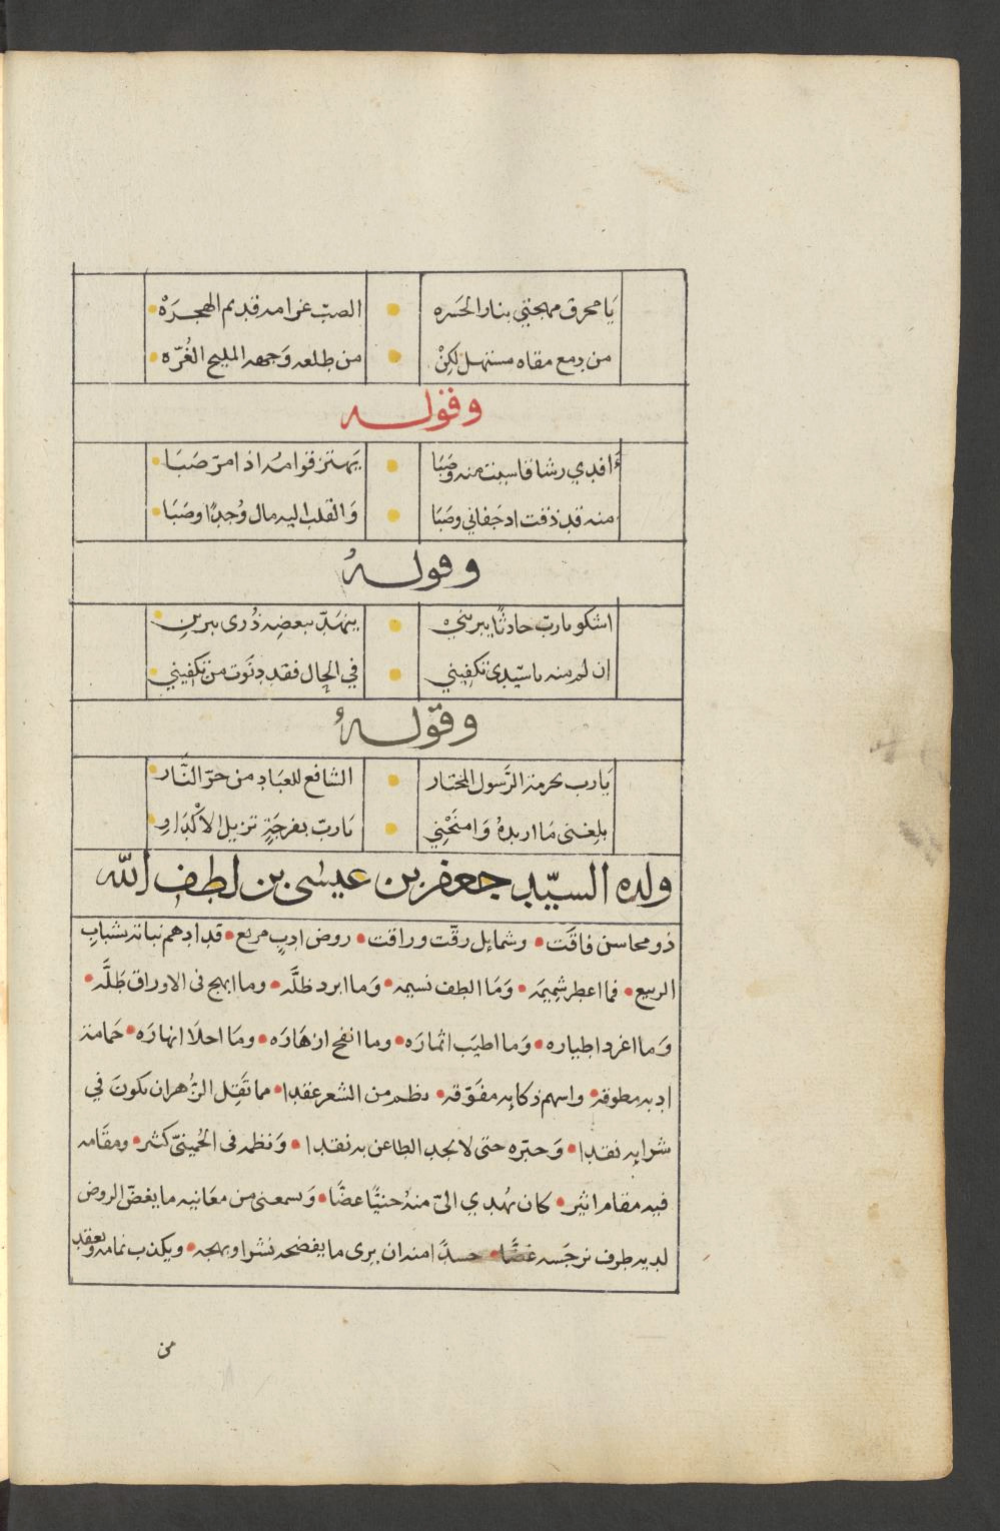 يَا محرق مهجتي بنار الحَسَره • الصبّ غرامه قديم الهجرَهْ •
من دمع مقلة مستهل لكِنْ • من طلعه وَجهه المليح الغُرّه •
وقوله
أفدي رشا قاسيت منه وَصَبَا • يَهتز قوامُه اذا مرّ صَبَا •
منه قد ذقت اذ جَفاني وصَبَا • وَالقلب اليه مال وُجدًا وصَبَا •
وقولهُ
اشكو يا ربّ حادثًا يبريني • ينهَدّ ببعضِه ذُرى يبرين •
ان لم منه يا سَيّدي تكفيني • في الحال فقد دنَوت من تكفيني •
وقولهُ
يَا رب بحرمة الرَّسول المختار • الشافع للعبَادِ من حرّ النَّار •
بلغني مَا اريدهُ وَامنَحْني • يَا ربّ بفرجَةٍ تزيل الاكْدَار •
ولده السيّد جعفر بن عيسى بن لطف الله
ذو محاسن فاقَت • وشمايل رقّت وراقت • روض ادبٍ مريع • قد ادهم نباته بشبابِ
الربيع • فما اعطر شميمَه • وَمَا الطف نسيمه • وَما ابرد ظلَّه • وما ابهج في الاوراق طَلَّه •
وَما اغرد اطياره • وَما اطيَب اثمارَه • وما انفح ازهَارَه • ومَا احلَا انهارَه • حَمامة
ادبه مطوقه • واسهم ذكايه مفَوّقه • نظم من الشعر عقدا • مما تَقِل الزُهر ان يكونَ في
شرايه نقدا • وَحبّره حتى لا يجد الطاعن به نقدا • وَنظمه في الحُمينيّ كثر • ومقَامه
فيه مقام اثير • كان يُهدي اليّ منهُ جنيًّا غضًّا • وَيسمعني من معَانيه ما يغضّ الروض
لديه طرف نرجَسه غضًّا • حسدًا منه ان يرى ما يفضحه نشرا وبهجه • ويكذب نمامه ويعقد
من